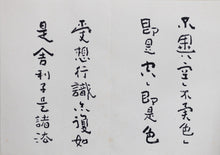 不異空〻不異色〻
即是空〻即是色
受想行識亦復如
是舍利子是諸法